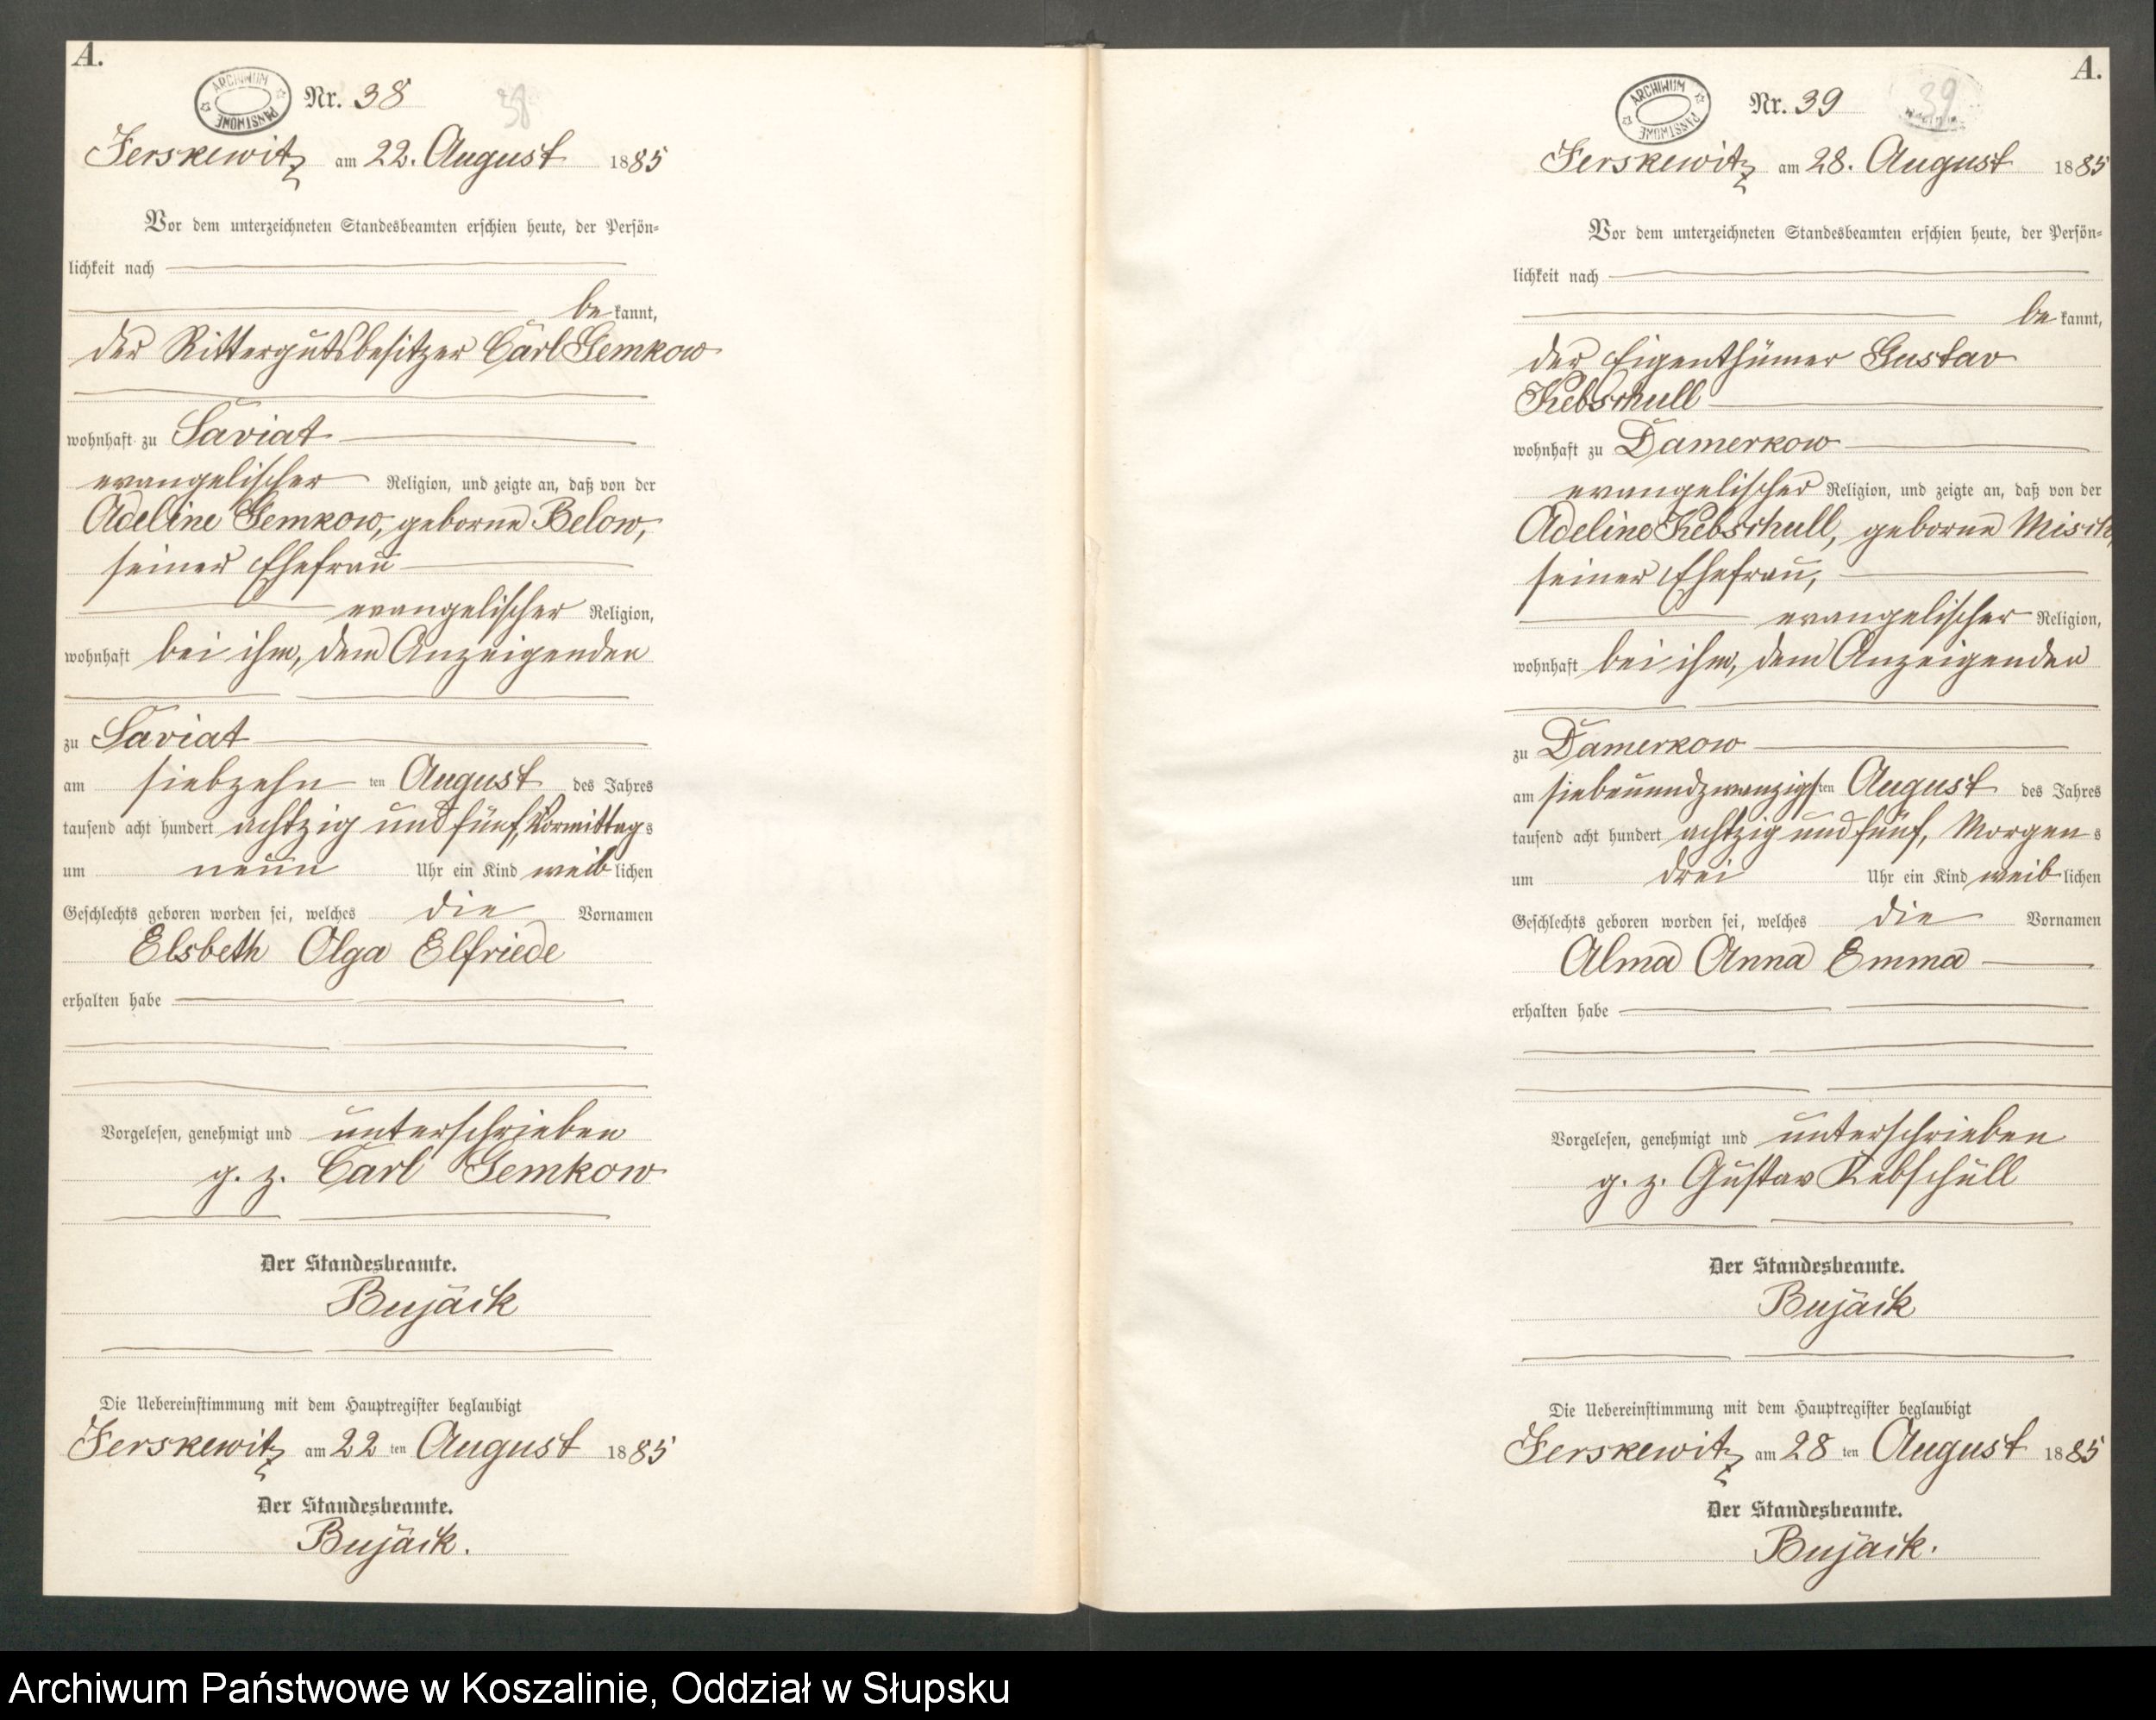 A.
ARCHIWUM PAŃSTWOWE
Nr. 38
38
Jerskewitz am 22. August 1885
Vor dem unterzeichneten Standesbeamten erschien heute, der Persön-
lichkeit nach
be kannt,
der Rittergutsbesitzer Carl Gemkow
wohnhaft zu Saviat
evangelischer Religion, und zeigte an, daß von der
Adeline Gemkow, geborne Below,
seiner Ehefrau
evangelischer Religion,
wohnhaft bei ihm, dem Anzeigenden
zu Saviat
am siebzehn ten August des Jahres
tausend acht hundert achtzig und fünf, Vormittags
um neun Uhr ein Kind weiblichen
Geschlechts geboren worden sei, welches die Vornamen
Elsbeth Olga Elfriede
erhalten habe
Vorgelesen, genehmigt und unterschrieben
g. z. Carl Gemkow
Der Standesbeamte.
Bujack
Die Uebereinstimmung mit dem Hauptregister beglaubigt
Jerskewitz am 22 ten August 1885
Der Standesbeamte.
Bujack.
A.
ARCHIWUM PAŃSTWOWE
Nr. 39
39
Jerskewitz am 28. August 1885
Vor dem unterzeichneten Standesbeamten erschien heute, der Persön-
lichkeit nach
be kannt,
der Eigenthümer Gustav
Kebschull
wohnhaft zu Damerkow
evangelischer Religion, und zeigte an, daß von der
Adeline Kebschull, geborne Misch,
seiner Ehefrau,
evangelischer Religion,
wohnhaft bei ihm, dem Anzeigenden
zu Damerkow
am siebenundzwanzigsten August des Jahres
tausend acht hundert achtzig und fünf, Morgens
um drei Uhr ein Kind weiblichen
Geschlechts geboren worden sei, welches die Vornamen
Alma Anna Emma
erhalten habe
Vorgelesen, genehmigt und unterschrieben
g. z. Gustav Kebschull
Der Standesbeamte.
Bujack
Die Uebereinstimmung mit dem Hauptregister beglaubigt
Jerskewitz am 28 ten August 1885
Der Standesbeamte.
Bujack.
Archiwum Państwowe w Koszalinie, Oddział w Słupsku